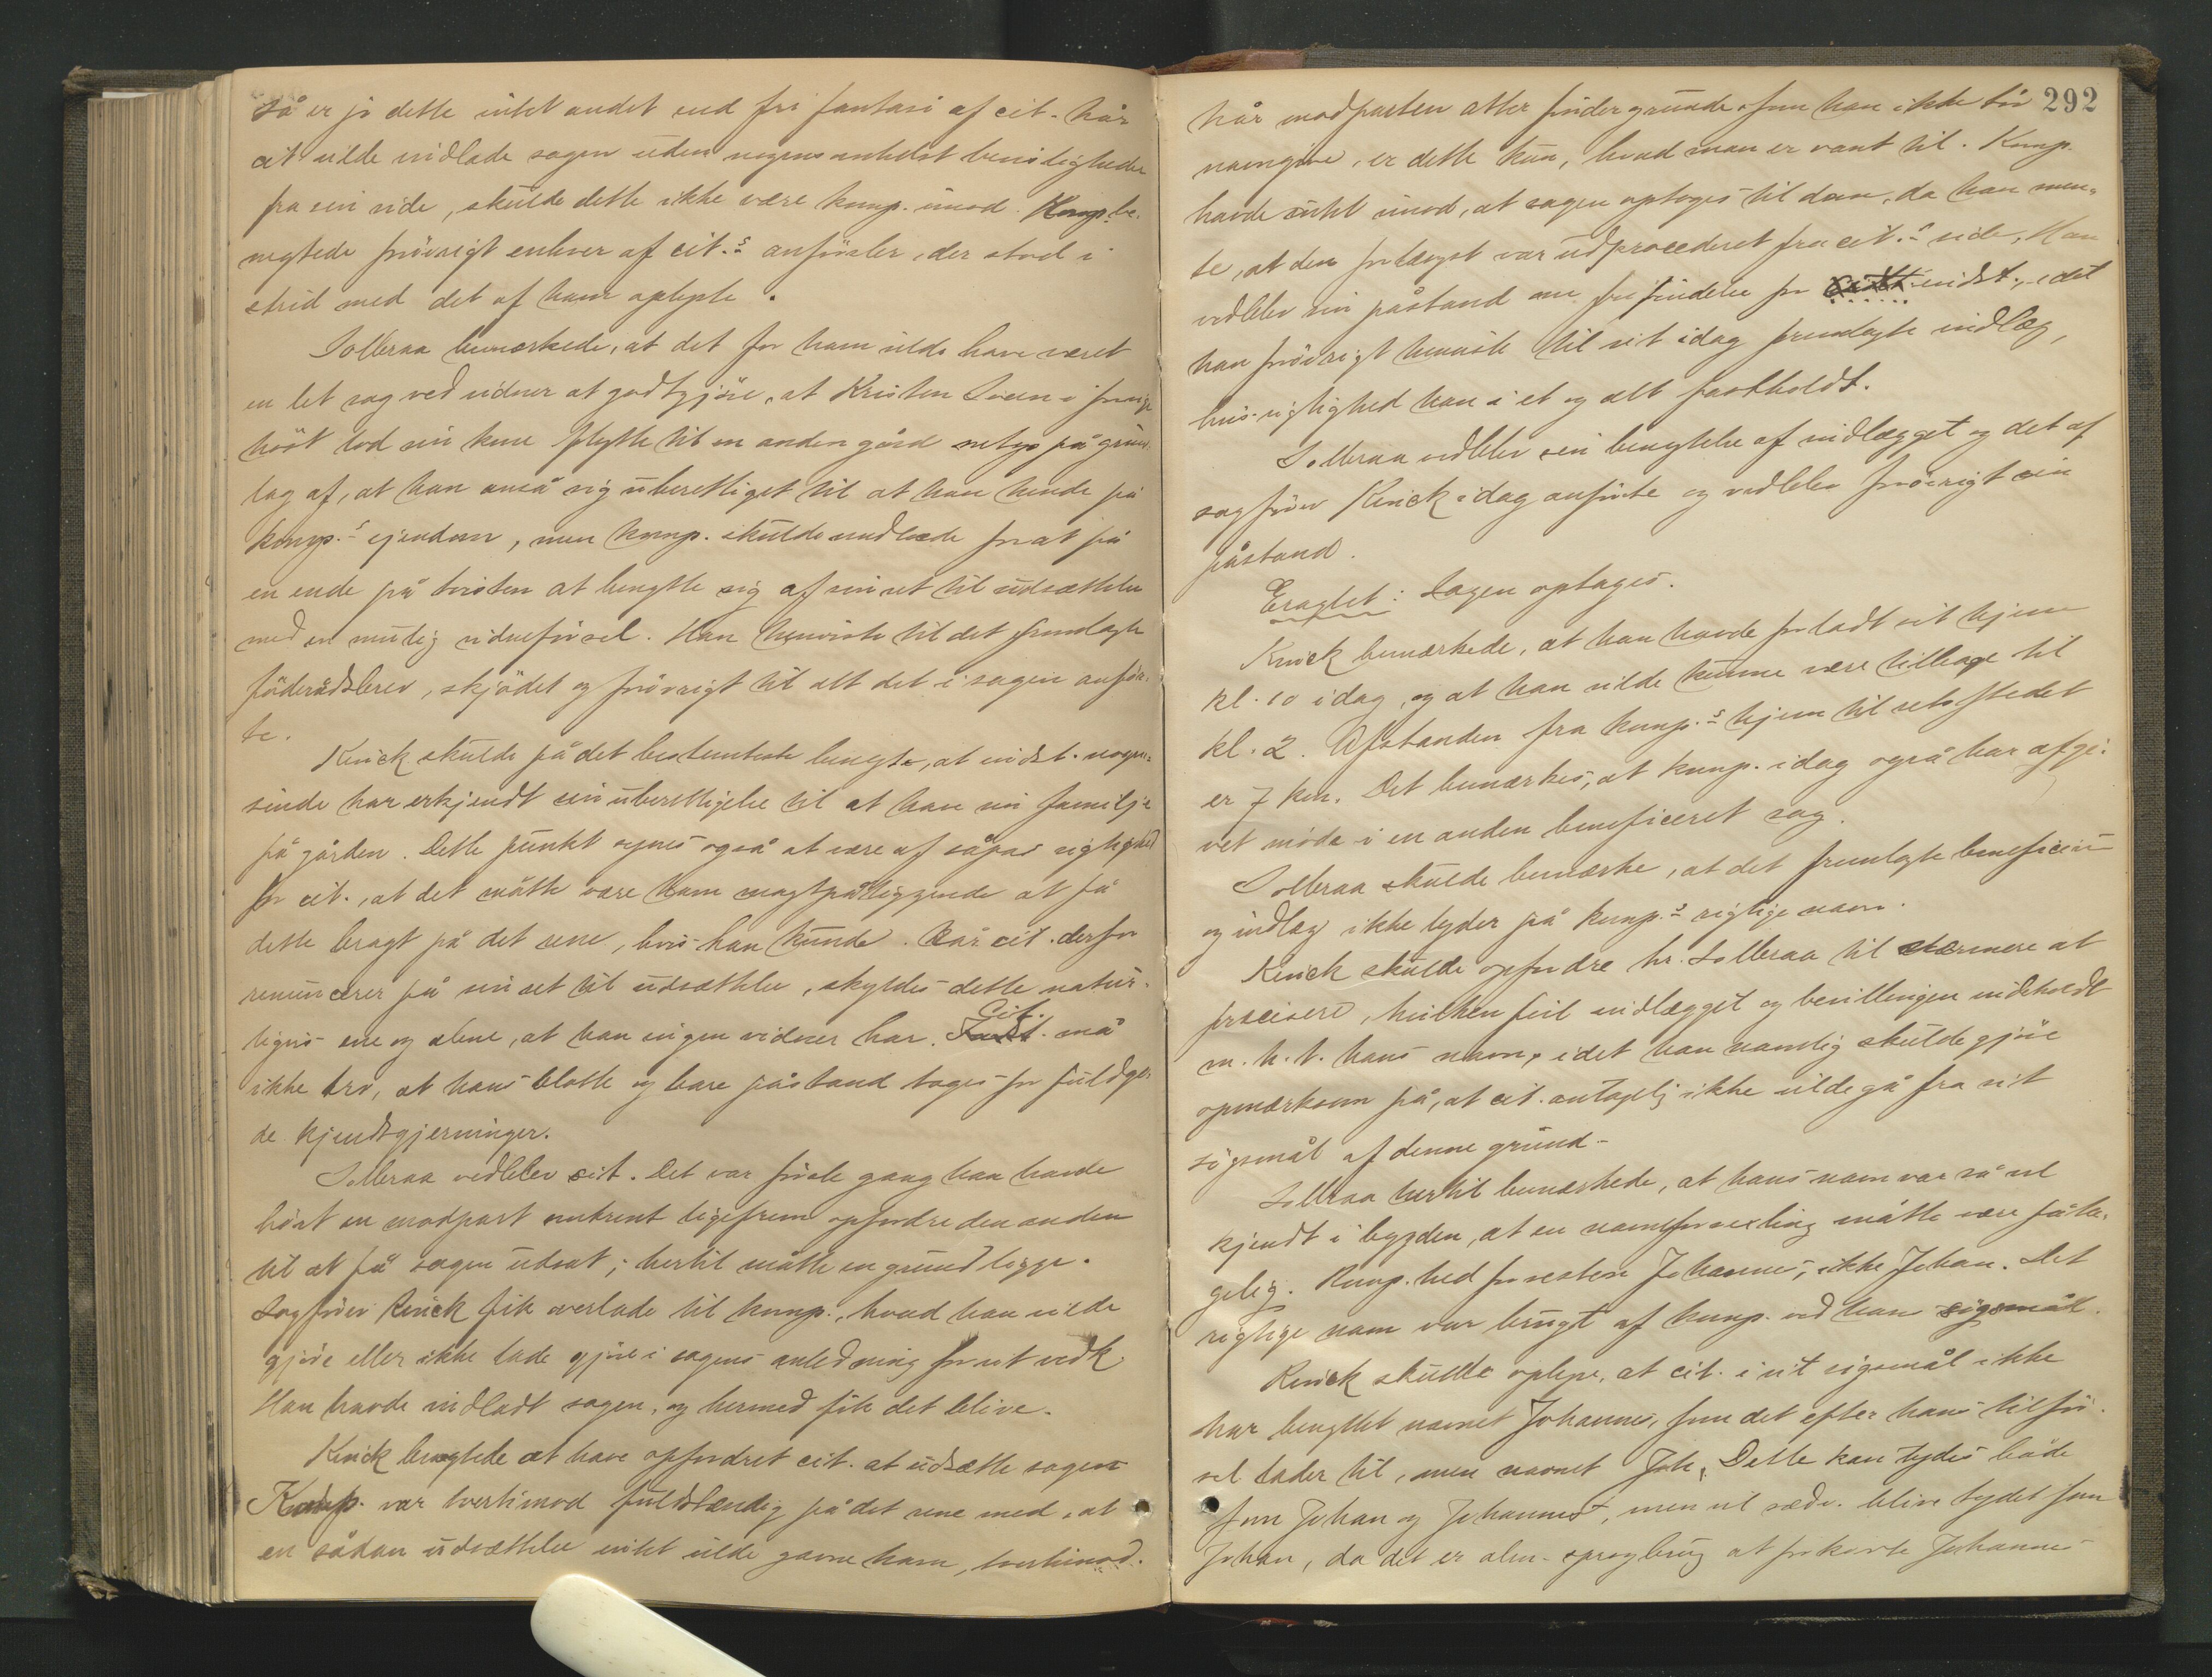 så er jo dette intet andet end fri fantasi af cit. Når
cit vilde indlade sagen uden nogensomhelst bevisligheder
fra sin side, skulde dette ikke være komp. imod. Komp. be-
negtede forøvrigt enhver af cit.s anførsler, der stod i
strid med det af ham oplyste.
Solbraa bemærkede, at det for ham vilde have været
en let sag ved vidner at godtgjøre, at Kristen Sveen i forrige
høst lod sin kone flytte til en anden gård netop på grund-
lag af, at han anså sig uberettiget til at have hende på
komp.s ejendom, men komp. skulde undlade for at få
en ende på tvisten at benytte sig af sin ret til udsættelse
med en mulig vidneførsel. Han henviste til det fremlagte
føderådsbrev, skjødet og forøvrigt til alt det i sagen anfør-
te.
Kinck skulde på det bestemteste benegte, at indst. nogen-
sinde har erkjendt sin uberettigelse til at have sin familje
på gården. Dette punkt synes også at være af såpas vigtighed
for cit., at det måtte være ham magtpåliggende at få
dette bragt på det rene, hvis han kunde. Når cit. derfor
renuncerer på sin ret til udsættelse, skyldes dette natur-
ligvis ene og alene, at han ingen vidner har. Cit. må
ikke tro, at hans blotte og bare påstand tages for fuldgo-
de kjendsgjerninger.
Solbraa vedblev sit. Det var første gang han havde
hørt en modpart omtrent ligefrem opfordre den anden
til at få sagen udsat; hertil måtte en grund ligge.
Sagfører Kinck fik overlade til komp., hvad han vilde
gjøre eller ikke lade gjøre i sagens anledning for sit vedk.
Han havde indladt sagen, og hermed fik det blive.
Kinck benegtede at have opfordret cit. at udsætte sagen
Komp. var tvertimod fuldstændig på det rene med, at
en sådan udsættelse intet vilde gavne ham, tvertimod.
292
når modparten atter finder grunde som han ikke bør
navngive, er dette kun, hvad man er vant til. Komp.
havde intet imod, at sagen optoges til dom, da han men-
te, at den forlængst var udprocederet fra cit.s side. Han
vedblev sin påstand om frifindelse for indst., idet
han forøvrigt henviste til sit idag fremlagte indlæg,
hvis rigtighed han i et og alt fastholdt.
Solbraa vedblev sin benegtelse af indlægget og det af
sagfører Kinck idag anførte og vedblev forøvrigt sin
påstand.
Eragtet: Sagen optages.
Kinck bemærkede, at han havde forladt sit hjem
kl. 10 idag, og at han vilde kunne være tilbage til
kl. 2. Afstanden fra komp.s hjem til retsstedet
er 7 km. Det bemærkes, at komp. idag også har afgi-
vet møde i en anden beneficeret sag.
Solbraa skulde bemærke, at det fremlagte beneficium
og indlæg ikke lyder på komp.s rigtige navn.
Kinck skulde opfordre hr. Solbraa til nærmere at
præcisere, hvilken feil indlægget og bevillingen indeholdt
m. h. t. hans navn, idet han nemlig skulde gjøre
opmærksom på, at cit. antagelig ikke vilde gå fra sit
søgsmål af denne grund.
Solbraa hertil bemærkede, at hans navn var så vel
kjendt i bygden, at en navneforvexling måtte være påta-
gelig. Komp. hed forresten Johannes, ikke Johan. Det
rigtige navn var brugt af komp. ved hans søgsmål.
Kinck skulde oplyse, at cit. i sit søgsmål ikke
har benyttet navnet Johannes, som det efter hans tilfør-
sel lader til, men navnet Joh. Dette kan tydes både
som Johan og Johannes, men vil sædv. blive tydet som
Johan, da det er alm. sprogbrug at forkorte Johannes